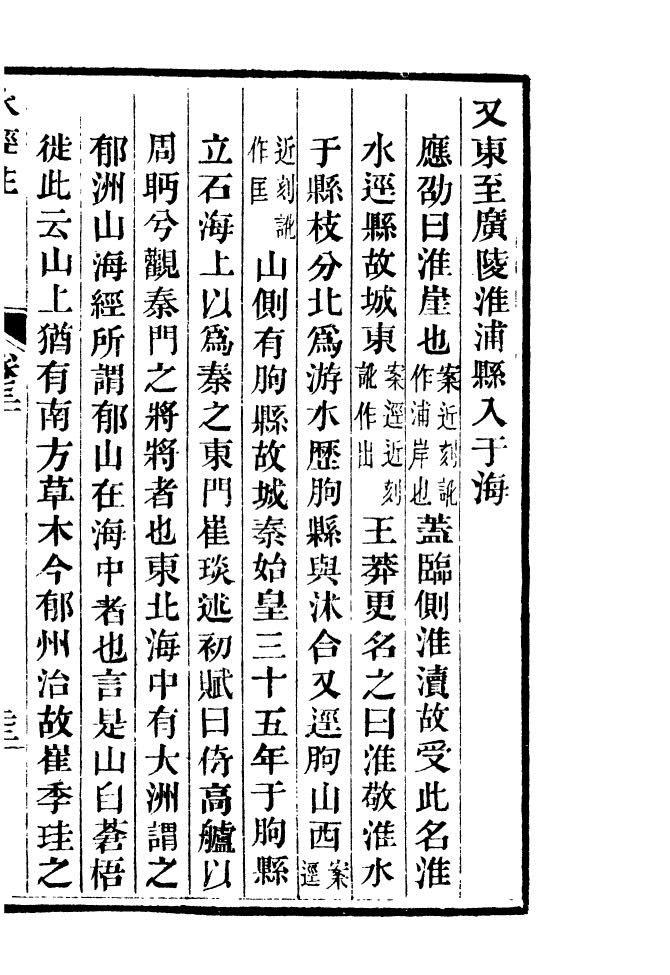 又東至廣陵淮浦縣入于海
應劭曰淮崖也案近刻訛作浦岸也蓋臨側淮瀆故受此名淮
水逕縣故城東案逕近刻訛作出王莽更名之曰淮敬淮水
于縣枝分北爲游水歷朐縣與沭合又逕朐山西案逕
近刻訛作匡山側有朐縣故城秦始皇三十五年于朐縣
立石海上以爲秦之東門崔琰述初賦曰倚高艫以
周眄兮觀秦門之將將者也東北海中有大洲謂之
郁洲山海經所謂郁山在海中者也言是山自蒼梧
徙此云山上猶有南方草木今郁州治故崔季珪之
水經注 卷三十